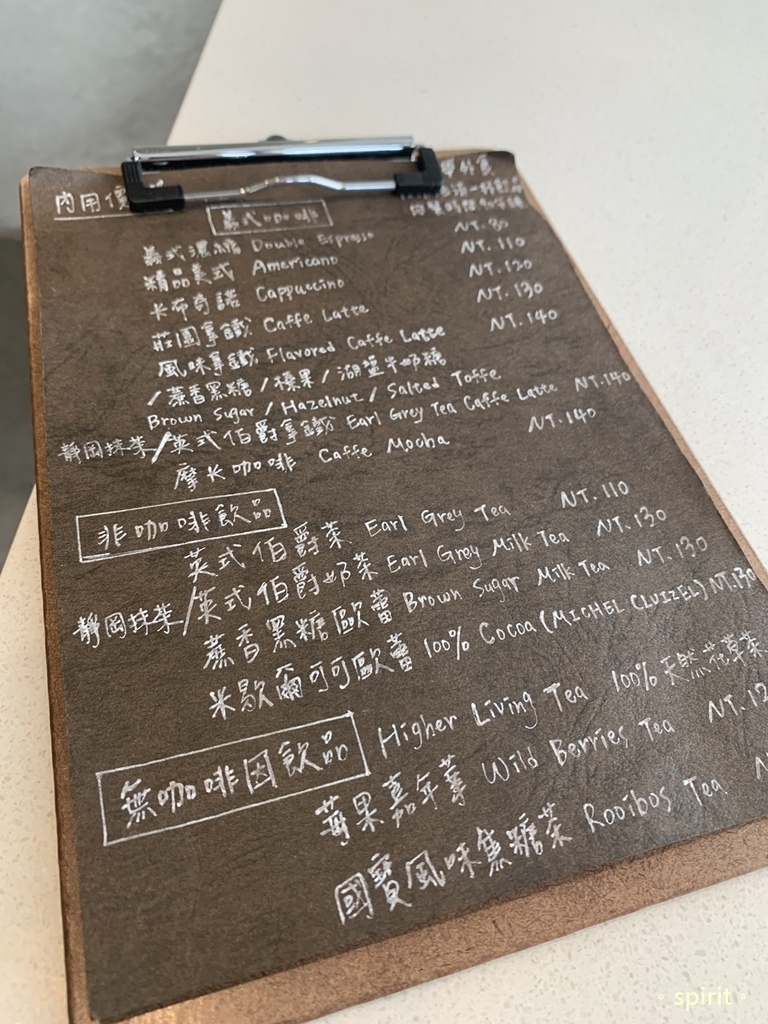 內用價
義式咖啡
義式濃縮 Double Espresso NT. 80
精品美式 Americano NT. 110
卡布奇諾 Cappuccino NT. 120
莊園拿鐵 Caffe Latte NT. 130
風味拿鐵 Flavored Caffe Latte NT. 140
/蔗香黑糖/榛果/湖鹽牛奶糖
Brown Sugar/Hazelnut/Salted Toffe
靜岡抹茶/英式伯爵拿鐵 Earl Grey Tea Caffe Latte NT.140
摩卡咖啡 Caffe Mocha NT.140
非咖啡飲品
英式伯爵茶 Earl Grey Tea NT. 110
靜岡抹茶/英式伯爵奶茶 Earl Grey Milk Tea NT. 130
蔗香黑糖歐蕾 Brown Sugar Milk Tea NT. 130
米歇爾可可歐蕾 100% Cocoa (MICHEL CLUIZEL) NT.130
無咖啡因飲品 Higher Living Tea 100% 天然花草茶
莓果嘉年華 Wild Berries Tea NT. 12
國寶風味焦糖茶 Rooibos Tea
spirit